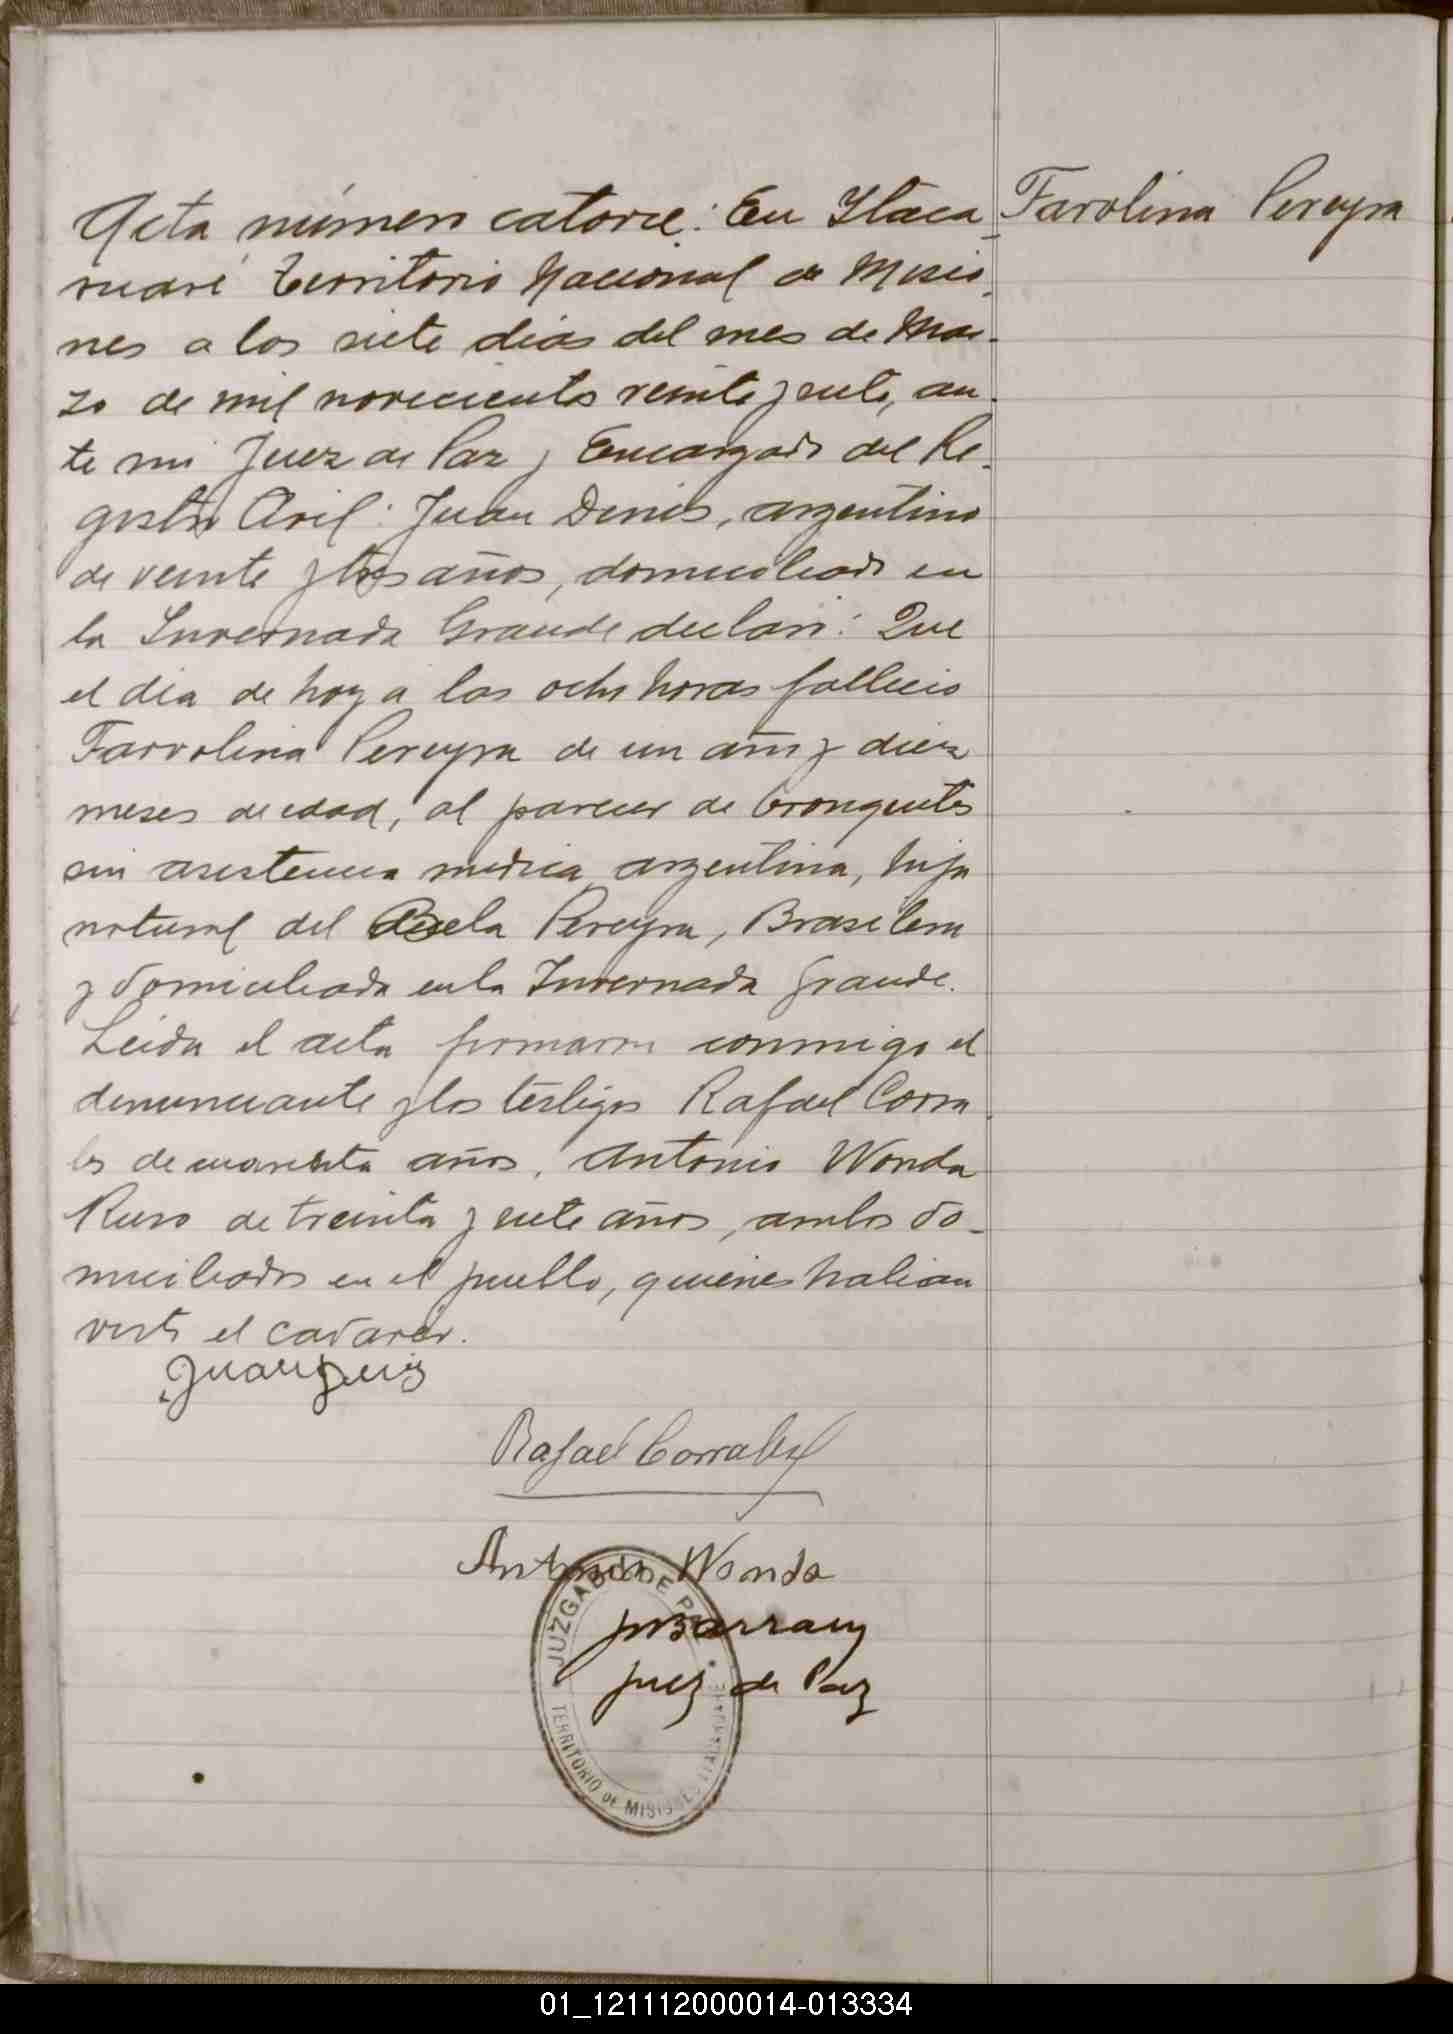 Acta número catorce: En Itaca
ruaré Territorio Nacional de Misio
nes a los siete dias del mes de Mar-
zo de mil novecientos veinte y siete, an-
te mi Juez de Paz y Encargado del Re-
gistro Civil: Juan Denis, argentino
de veinte y tres años, domiciliado en
la Invernada Grande declaró: Que
el dia de hoy a las ocho horas fallecio
Farvolina Pereyra de un año y diez
meses de edad, al parecer de bronquitis
sin asistencia medica argentina, hija
natural del Pereyra, Brasilera
y domiciliada en la Invernada Grande.
Leida el acta firmaron conmigo el
denunciante y los testigos Rafael Corra
les de cuarenta años, Antonio Wonda
Ruso de treinta y siete años, ambos do-
miciliados en el pueblo, quienes habian
visto el cadaver.
Farolina Pereyra
Juan Denis
Rafael Corrales
Antonio Wonda
Juez de Paz
JUZGADO DE PAZ
TERRITORIO DE MISIONES ITACARUARE
01_121112000014-013334